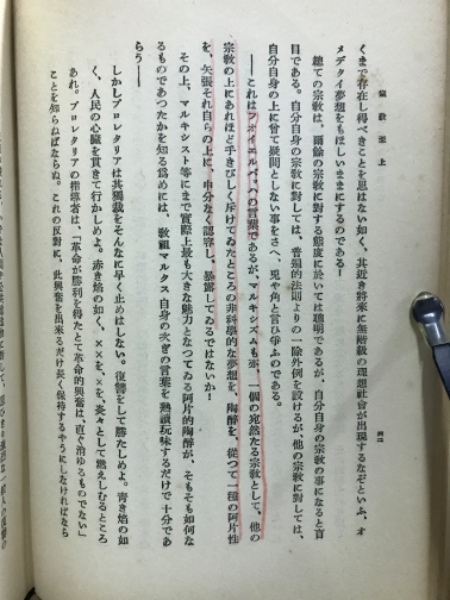 宗教至上
くまで存在し得べきことを思はない如く、其近き將來に無階級の理想社會が出現するなぞといふ、オ
メデタイ夢想をもほしいまゝにするのである！
總ての宗教は、爾餘の宗教に對する態度に於いては聰明であるが、自分自身の宗教の事になると盲
目である。自分自身の宗教に對しては、普遍的法則よりの一除外例を設けるが、他の宗教に對しては、
自分自身の上に曾て疑問としない事をさへ、兎や角と言ひ爭ふのである。
――これはフオイエルバッハの言葉であるが、マルキシズムも亦、一個の宛然たる宗教として、他の
宗教の上にあれほど手きびしく斥けてゐたところの非科學的な夢想を、陶醉を、從つて一種の阿片性
を、矢張それ自らの上に、申分なく認容し、暴露してゐるではないか！
その上、マルキシスト等にまで實際上最も大きな魅力となつてゐる阿片的陶醉が、そもそも如何な
るものであつたかを知る爲めには、教祖マルクス自身の次ぎの言葉を熟讀玩味するだけで十分であ
らう――
しかしプロレタリアは其獨裁をそんなに早く止めはしない。復讐をして勝たしめよ。青き焰の如
く、人民の心臟を貫きて行かしめよ。赤き焰の如く、××を、×を、炎々として燃えしむるところ
あれ。プロレタリアの指導者は、「革命が勝利を得たとて革命的興奮は、直ぐ消ゆるものでない」
ことを知らねばならぬ。これの反對に、此興奮を出來るだけ長く保持するやうにしなければなら